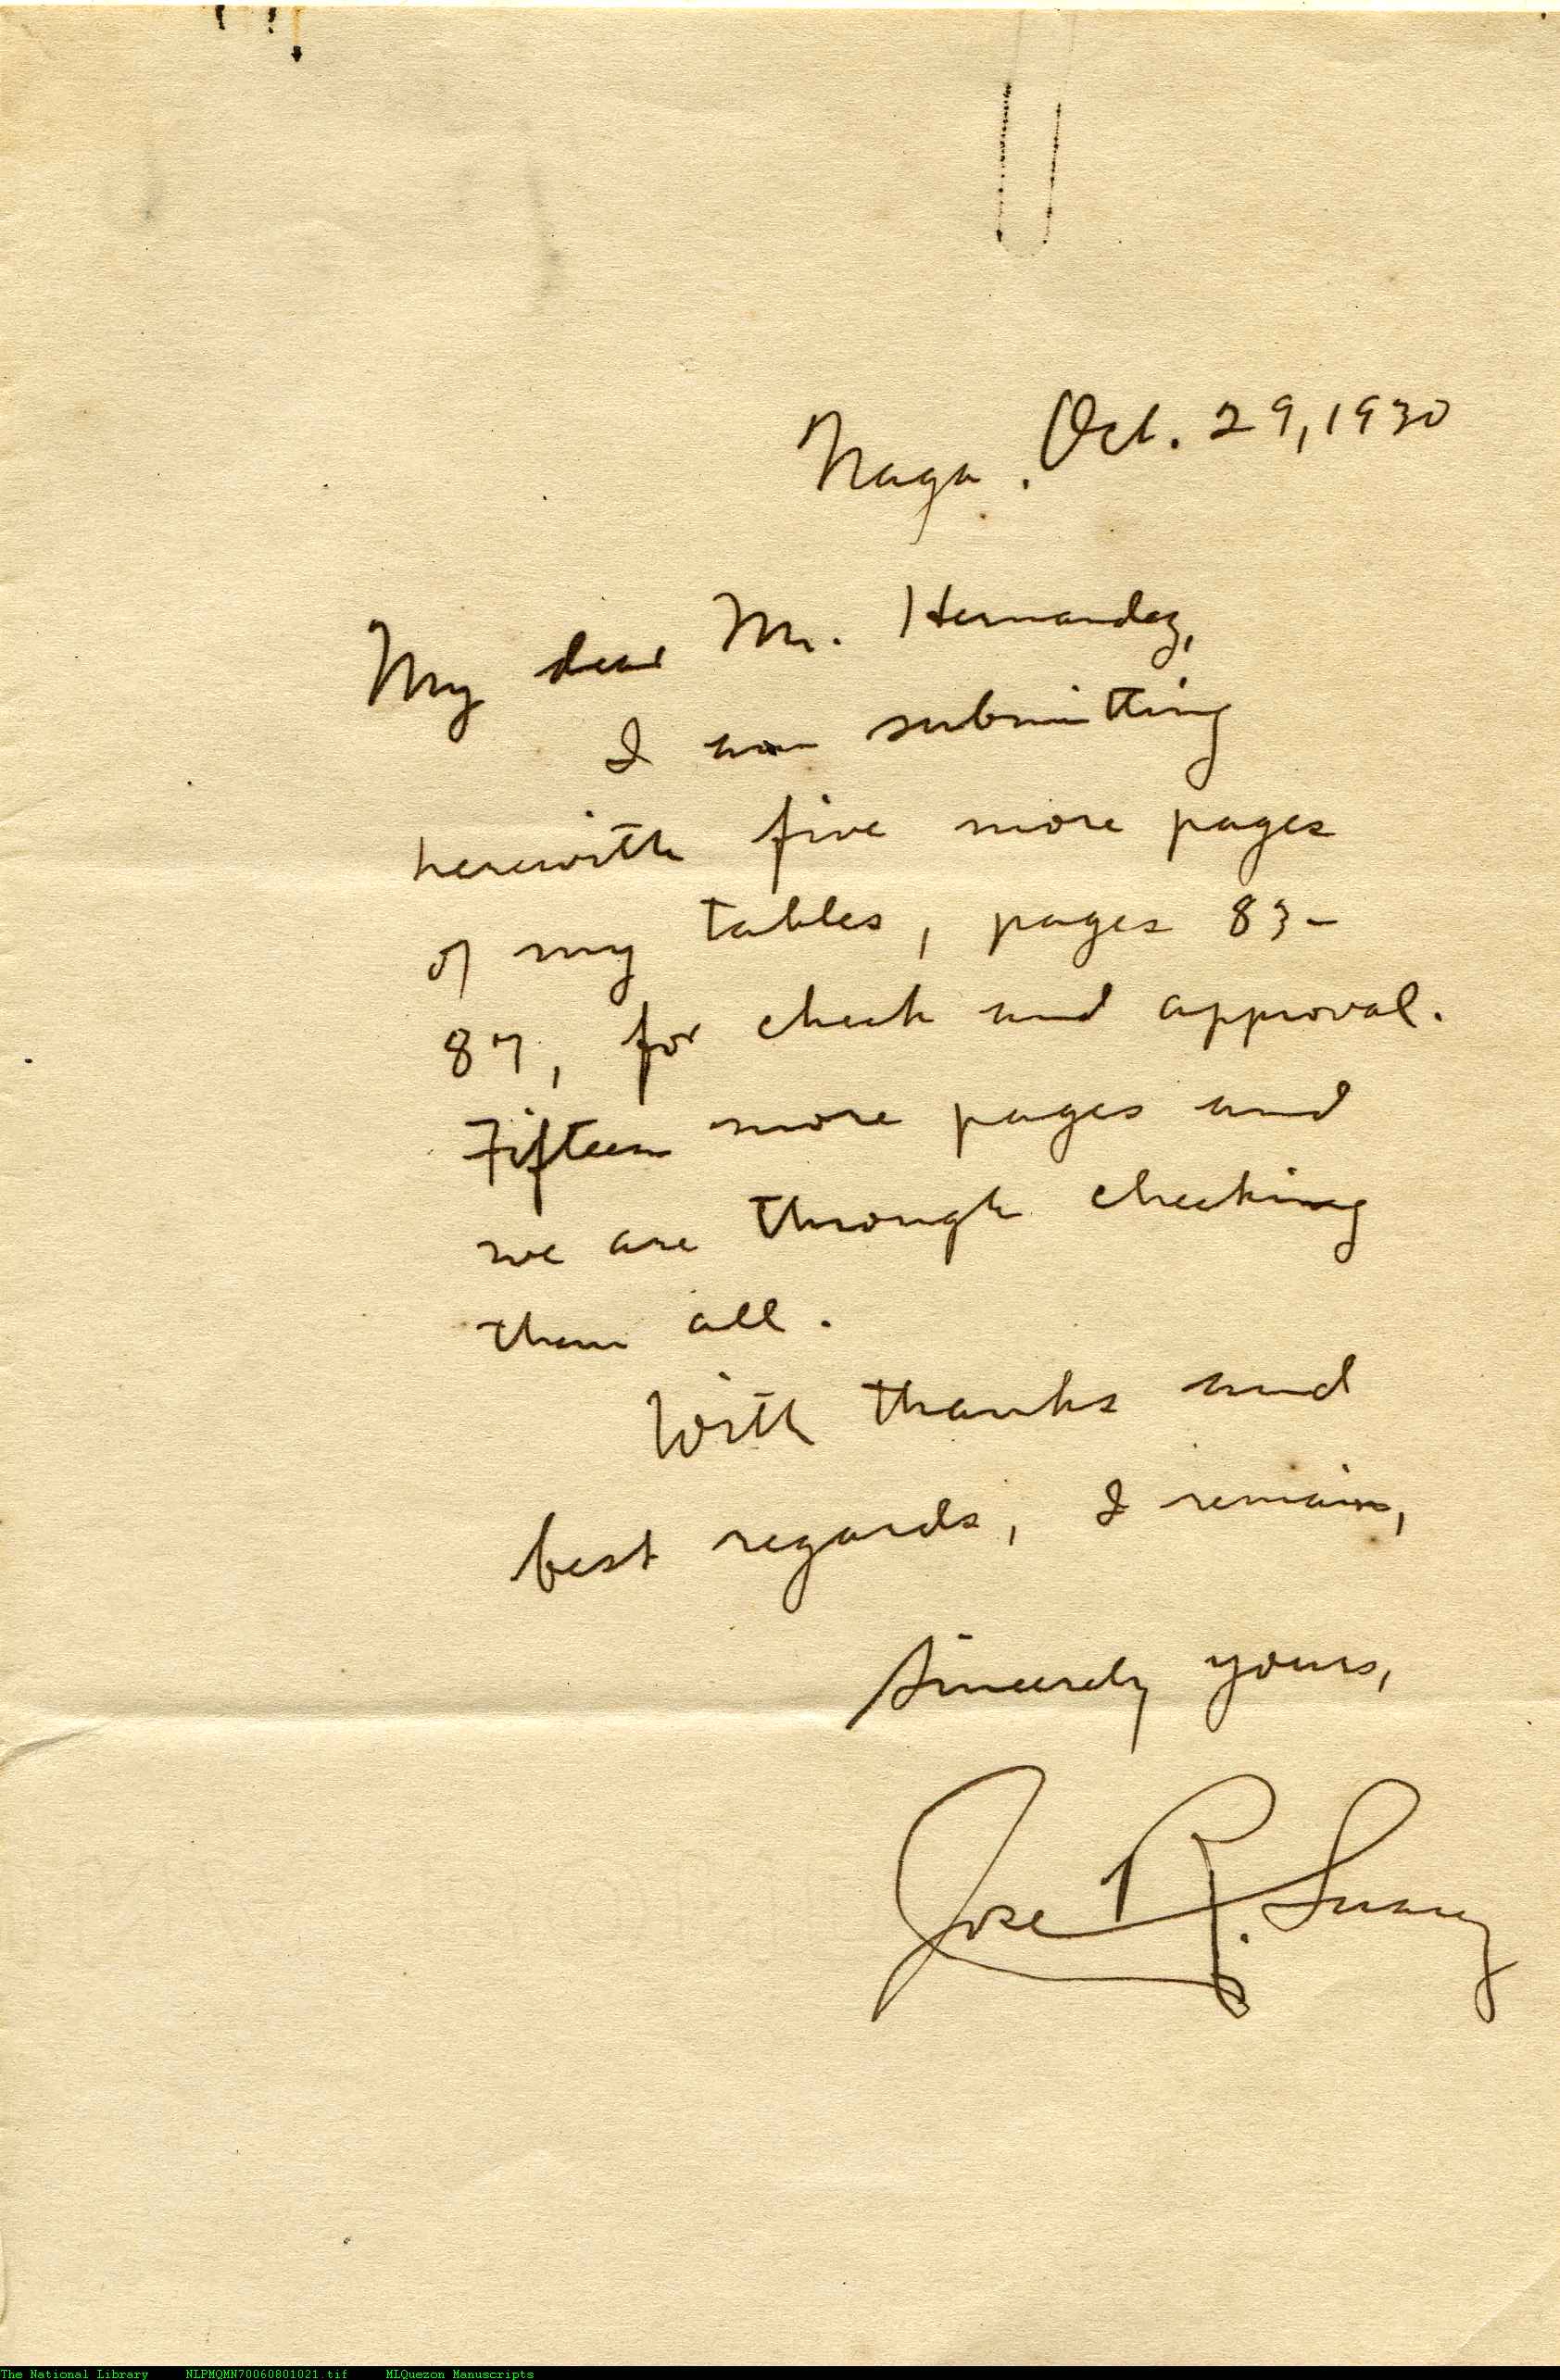 Naga. Oct. 29, 1930
My dear Mr. Hernandez,
I am submitting
herewith five more pages
of my tables, pages 83-
87, for check and approval.
Fifteen more pages and
we are through checking
them all.
With thanks and
best regards, I remain,
Sincerely yours,
Jose R. Suarez
The National Library NLPMQMN70060801021.tif MLQuezon Manuscripts